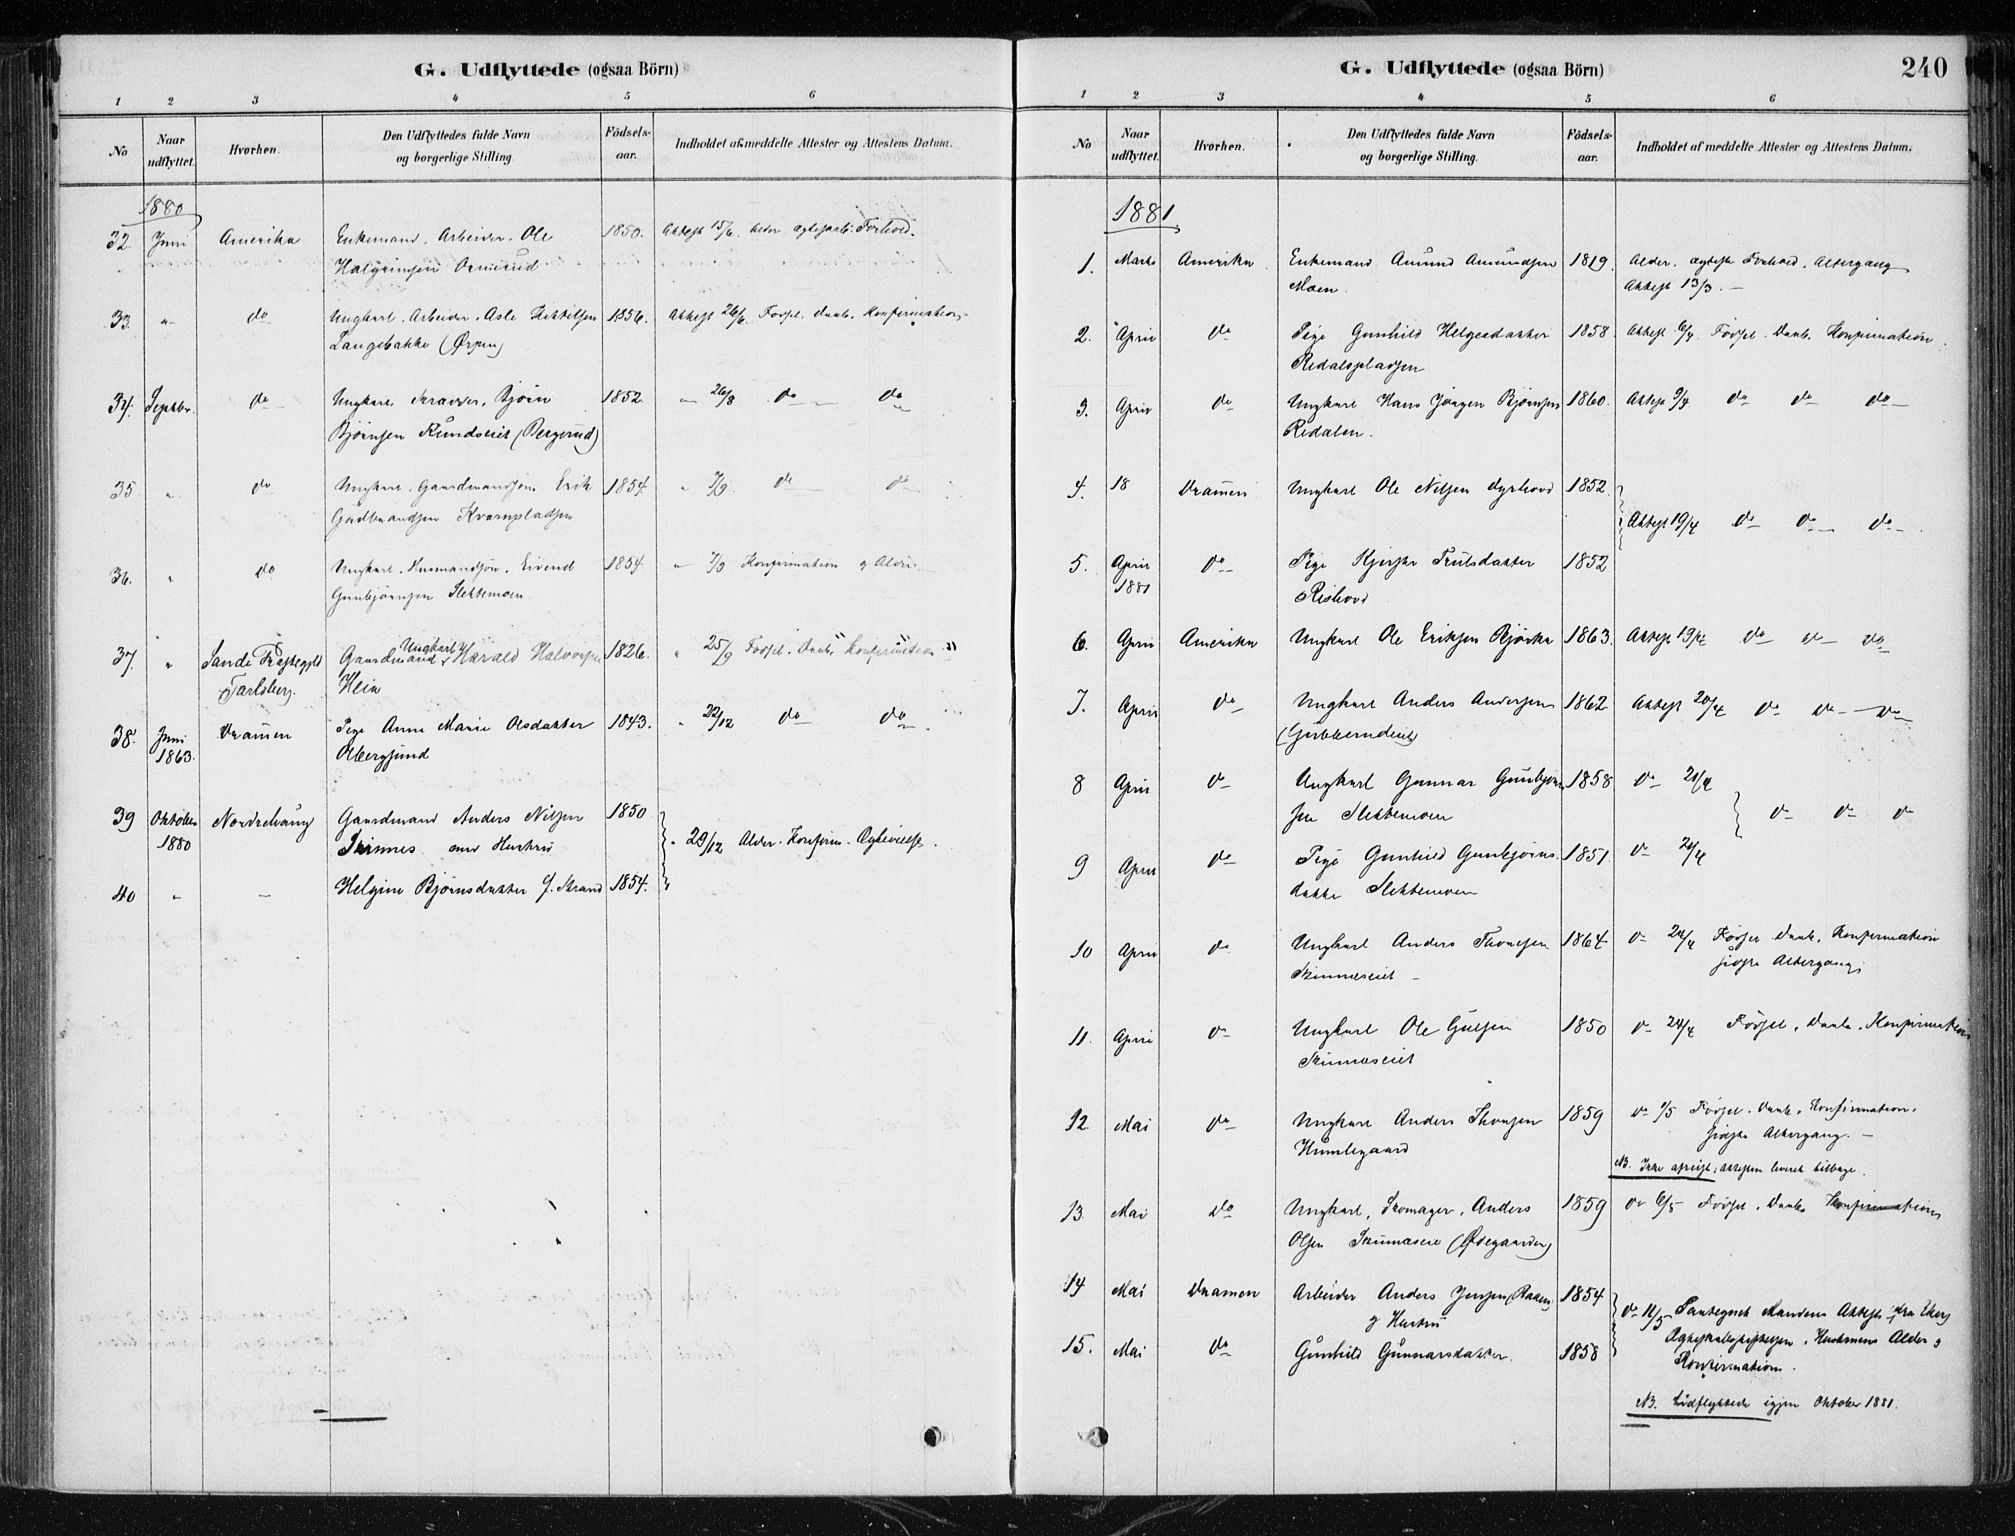 G. Udflyttede (ogsaa Börn)
1 2 3 4 5 6
No
Naar udflyttet.
Hvorhen.
Den Udflyttedes fulde Navn og borgerlige Stilling.
Födsels-aar.
Indholdet af meddelte Attester og Attestens Datum.
1880
32. Juni Amerika Enkemand, Arbeider. Ole 1850. Attest 15/6. Alder Forhold.
Halgrimsen Ormerud
33. " do Ungkarl, Arbeider, Asle 1856. Attest 26/6. Födsel. Daab. Konfirmation
Langebakke
34. Septbr. do Ungkarl, Bjørn 1852. " 26/8 do do
Bjørnsen Rundseiet (Bergerud)
35 " do Ungkarl. Gaardmandssøn Erik 1854. " 7/9. do do
Gudbrandsen Kvernpladsen
36. " do Ungkarl. Husmandssøn. Eivind 1854. " 7/9 Konfirmation og Alder
Gunbjørnsen Slettemoen
37. " Sande Præstegjeld Gaardmand Ungkarl Harald Halvorsen 1826. " 25/9 Födsel. Daab. Konfirmation
Jarlsberg. Hein
38. Juni Dramen Pige Anne Marie Olsdatter 1843. " 22/12 do do
1863. Olbergsund
39 Oktober Gaardmand Anders Nilsen 1850
1880 Skinnes med Hustru " 29/12 Alder. Konfirm.
40 " — Helgine Bjørnsdatter f. Strand 1854.
G. Udflyttede (ogsaa Börn) 240
1 2 3 4 5 6
No
Naar udflyttet.
Hvorhen.
Den Udflyttedes fulde Navn og borgerlige Stilling.
Födsels-aar.
Indholdet af meddelte Attester og Attestens Datum.
1881
1. Marts Amerika Enkemand Amund Amundsen 1819. Alder. Forhold. Altergang
Moen. Attest 13/3. —
2. April do Pige Gunhild Helgesdatter 1858. Attest 6/4. Födsel. Daab. Konfirmation
Redalspladsen
3. April do Ungkarl Hans Jørgen Bjørnsen 1860. Attest 9/4 do do do
Redalen.
4. 18 Dramen Ungkarl Ole Nilsen 1852.
Attest 19/4 do do do
5. April do Pige Trulsdatter 1852
1881 Rishovd
6. April Amerika Ungkarl Ole Eriksen 1863. Attest 19/4 do do do
7. April do Ungkarl Anders Andersen 1862 Attest 20/4 do do do
8 April do Ungkarl Gunnar Gunbjørn- 1858 do 21/4
sen Slettemoen do do do
9 April do Pige Gunhild Gunbjørns- 1851. do 21/4
datter Slettemoen
10 April do Ungkarl Anders 1864 do 24/4 Födsel Daab, Konfirmation
Skinneseiet — sidste Altergang
11. April do Ungkarl Ole Gulsen 1850 do 24/4 Födsel, Daab, Konfirmation
Skinneseiet
12. Mai do Ungkarl Anders 1859 do 1/5 Födsel. Daab. Konfirmation.
Humlegaard sidste Altergang. —
NB. Ikke afreist; attesten leveret tilbage.
13. Mai do Ungkarl, Skomager, Anders 1859 do 6/5 Födsel, Daab, Konfirmation
Olsen Skinneseie (Ødegaarden)
14 Mai Dramen Arbeider Anders Jensen 1854
g Hustru do 11/5 Paategnet Mandens Attest fra Eker
15. Mai do Gunhild Gunnarsdatter. 1858 Hustruens Alder g
Konfirmation.
NB. Indflyttede igjen Oktober 1881.